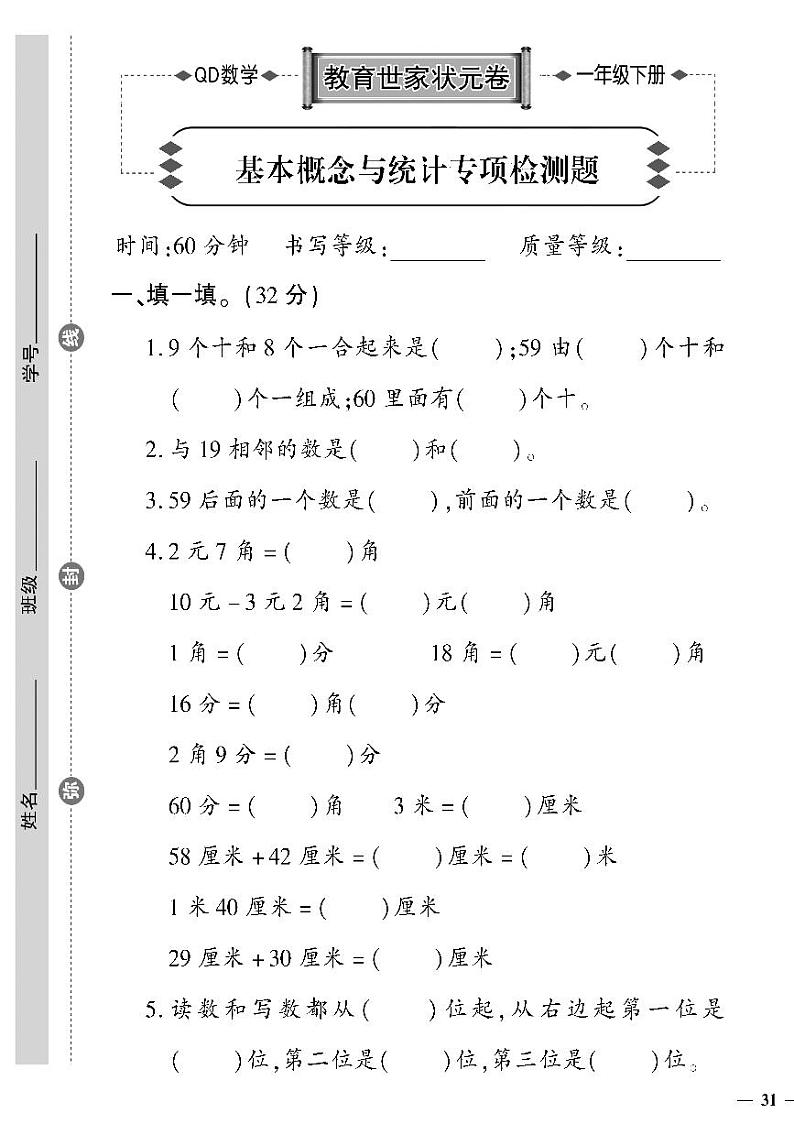 QD数学
教育世家状元卷
一年级下册
基本概念与统计专项检测题
时间:60 分钟 书写等级:________ 质量等级:________
一、填一填。(32 分)
1. 9 个十和 8 个一合起来是( );59 由( )个十和
( )个一组成;60 里面有( )个十。
2. 与 19 相邻的数是( )和( )。
3. 59 后面的一个数是( ),前面的一个数是( )。
4. 2 元 7 角 = ( )角
10 元 - 3 元 2 角 = ( )元( )角
1 角 = ( )分 18 角 = ( )元( )角
16 分 = ( )角( )分
2 角 9 分 = ( )分
60 分 = ( )角 3 米 = ( )厘米
58 厘米 + 42 厘米 = ( )厘米 = ( )米
1 米 40 厘米 = ( )厘米
29 厘米 + 30 厘米 = ( )厘米
5. 读数和写数都从( )位起,从右边起第一位是
( )位,第二位是( )位,第三位是( )位。
— 31 —
学号________
班级________
姓名________
线
封
弥